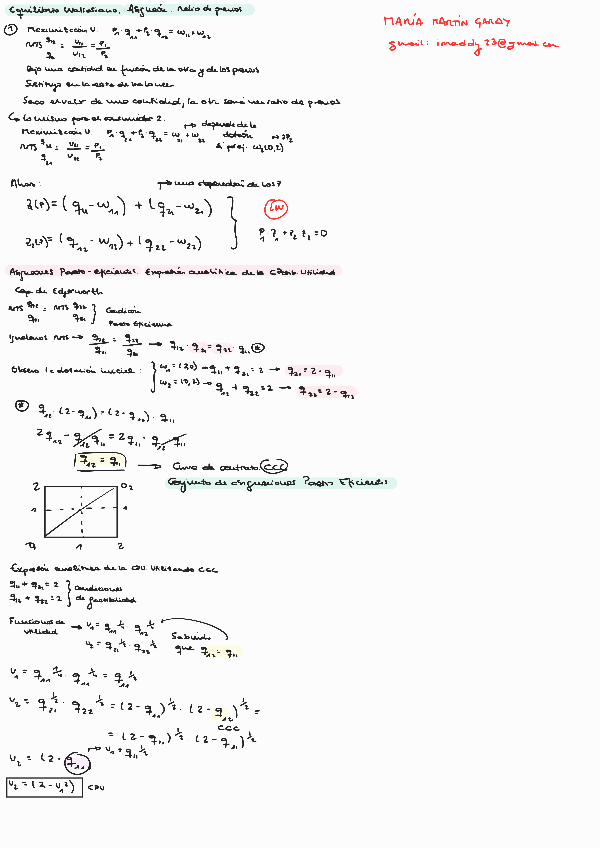 Equilibrio Walrasiano. Asignación. Ratio de precios
MARÍA MARTÍN GARAY
① Maximización U. P₁·q₁₁ + P₂·q₁₂ = w₁₁ + w₁₂
RMS q₁₂/q₁₁ = U₁₁/U₁₂ = P₁/P₂
Dejo una cantidad en función de la otra y de los precios
Sustituyo en la recta de balance
Saco el valor de una cantidad, la otra será un ratio de precios
Lo mismo para el consumidor 2.
depende de la
Maximización U P₁·q₂₁ + P₂·q₂₂ = w₂₁ + w₂₂ dotación
RMS q₂₂/q₂₁ = U₂₁/U₂₂ = P₁/P₂
Ahora:
Z₁(P) = (q₁₁ - w₁₁) + (q₂₁ - w₂₁)
LW
P₁Z₁ + P₂Z₂ = 0
Z₂(P) = (q₁₂ - w₁₂) + (q₂₂ - w₂₂)
Asignaciones Pareto-eficientes. Expresión analítica de la CPosib. Utilidad
Caja de Edgeworth
RMS q₁₂/q₁₁ = RMS q₂₂/q₂₁ } Condición
Pareto Eficiencia
Igualamos RMS → q₁₂/q₁₁ = q₂₂/q₂₁ → q₁₂·q₂₁ = q₂₂·q₁₁ ⊛
Observo la dotación inicial: { w₁ = (2,0) → q₁₁ + q₂₁ = 2 → q₂₁ = 2 - q₁₁
w₂ = (0,2) → q₁₂ + q₂₂ = 2 → q₂₂ = 2 - q₁₂
⊛ q₁₂·(2 - q₁₁) = (2 - q₁₂)·q₁₁
2q₁₂ - q₁₂q₁₁ = 2q₁₁ - q₁₂q₁₁
q₁₂ = q₁₁ → Curva de contrato CCC
Conjunto de asignaciones Pareto Eficientes
2 O₂
1 1
O₁ 1 2
Expresión analítica de la CPU utilizando CCC
q₁₁ + q₂₁ = 2 } Condiciones
q₁₂ + q₂₂ = 2 } de factibilidad
Funciones de utilidad → U₁ = q₁₁^¼ q₁₂^¼
U₂ = q₂₁^½·q₂₂^½
Sabiendo
que q₁₂ = q₁₁
U₁ = q₁₁^¼·q₁₁^¼ = q₁₁^½
U₂ = q₂₁^½·q₂₂^½ = (2 - q₁₁)^½·(2 - q₁₂)^½ =
CCC
= (2 - q₁₁)^½·(2 - q₁₁)^½
U₂ = (2 - q₁₁) → U₁ = q₁₁^½
U₂ = (2 - U₁²) CPU